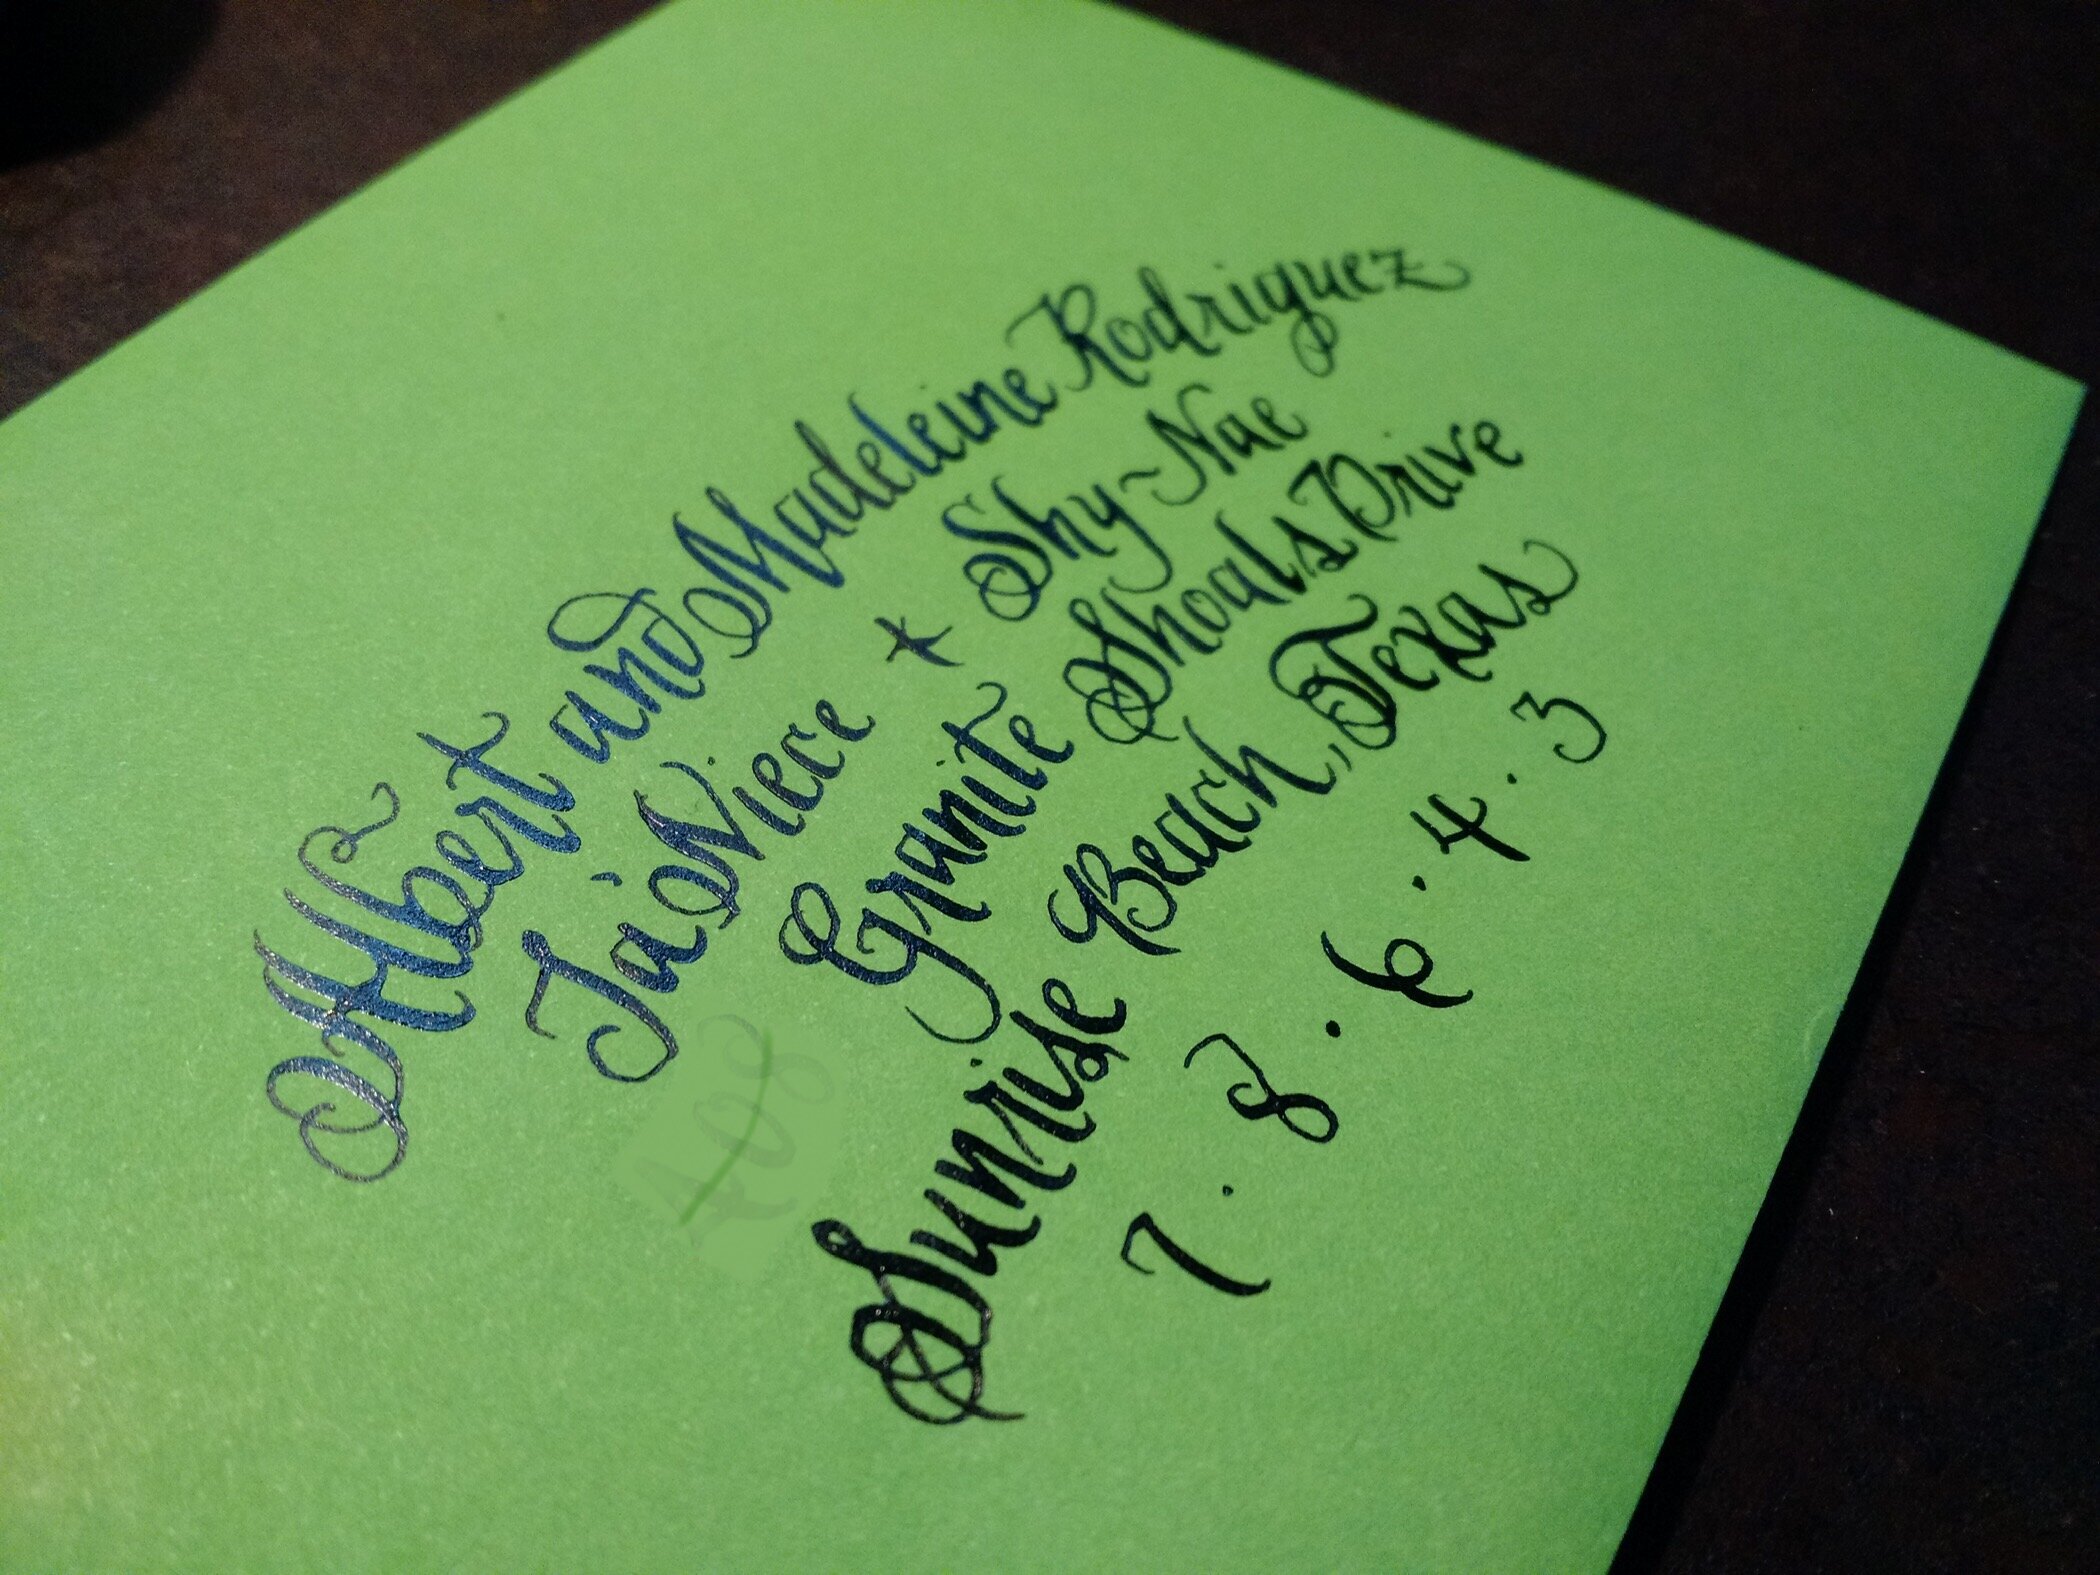 Albert and Madeleine Rodriguez
Tai Niece * Shy-Nae
Granite Shoals Drive
Sunrise Beach, Texas
7.8.6.4.3